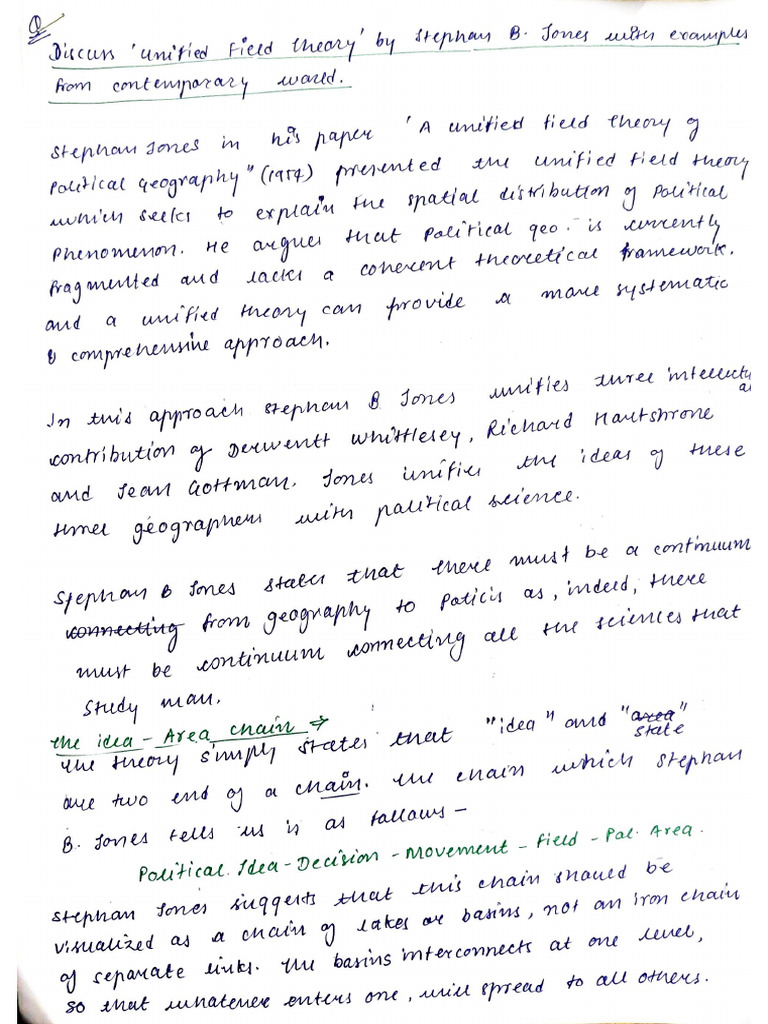 Q
Discuss 'unified Field theory' by Stephan B. Jones with examples
from contemporary world.
Stephan Jones in his paper 'A unified field theory of
Political Geography" (1954) presented the unified field theory
which seeks to explain the spatial distribution of Political
Phenomenon. He argues that political geo. is currently
fragmented and lacks a coherent theoretical framework.
and a unified theory can provide a more systematic
& comprehensive approach.
In this approach Stephan B. Jones unifies three intellectual
contribution of Derwentt Whittlesey, Richard Hartshrone
and Jean Gottman. Jones unifies the ideas of these
three geographers with political science.
Stephan B Jones states that there must be a continuum
connecting from geography to Poticis as, indeed, there
must be continuum connecting all the sciences that
study man.
The idea - Area chain ⇒
The theory simply states that "idea" and "area"
state
are two end of a chain. The chain which Stephan
B. Jones tells us is as follows -
Political Idea - Decision - Movement - Field - Pol. Area.
Stephan Jones suggests that this chain should be
visualized as a chain of lakes or basins, not an iron chain
of separate links. The basins interconnects at one level,
so that whatever enters one, will spread to all others.